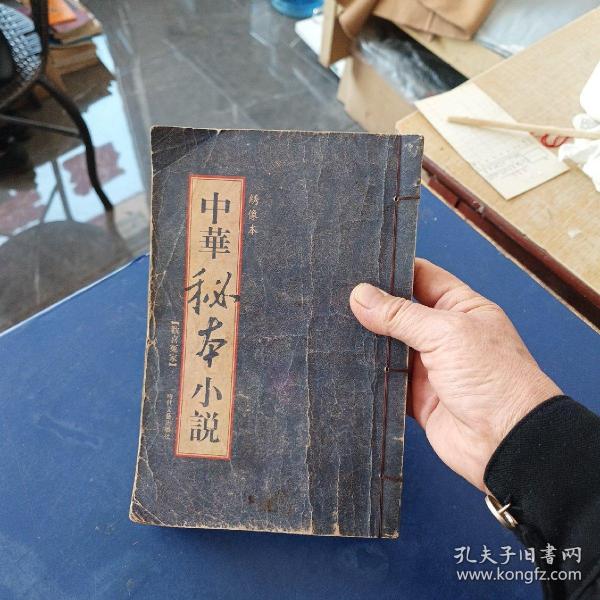 绣像本
中華秘本小説
【歡喜冤家】
孔夫子旧書网
www.kongfz.com